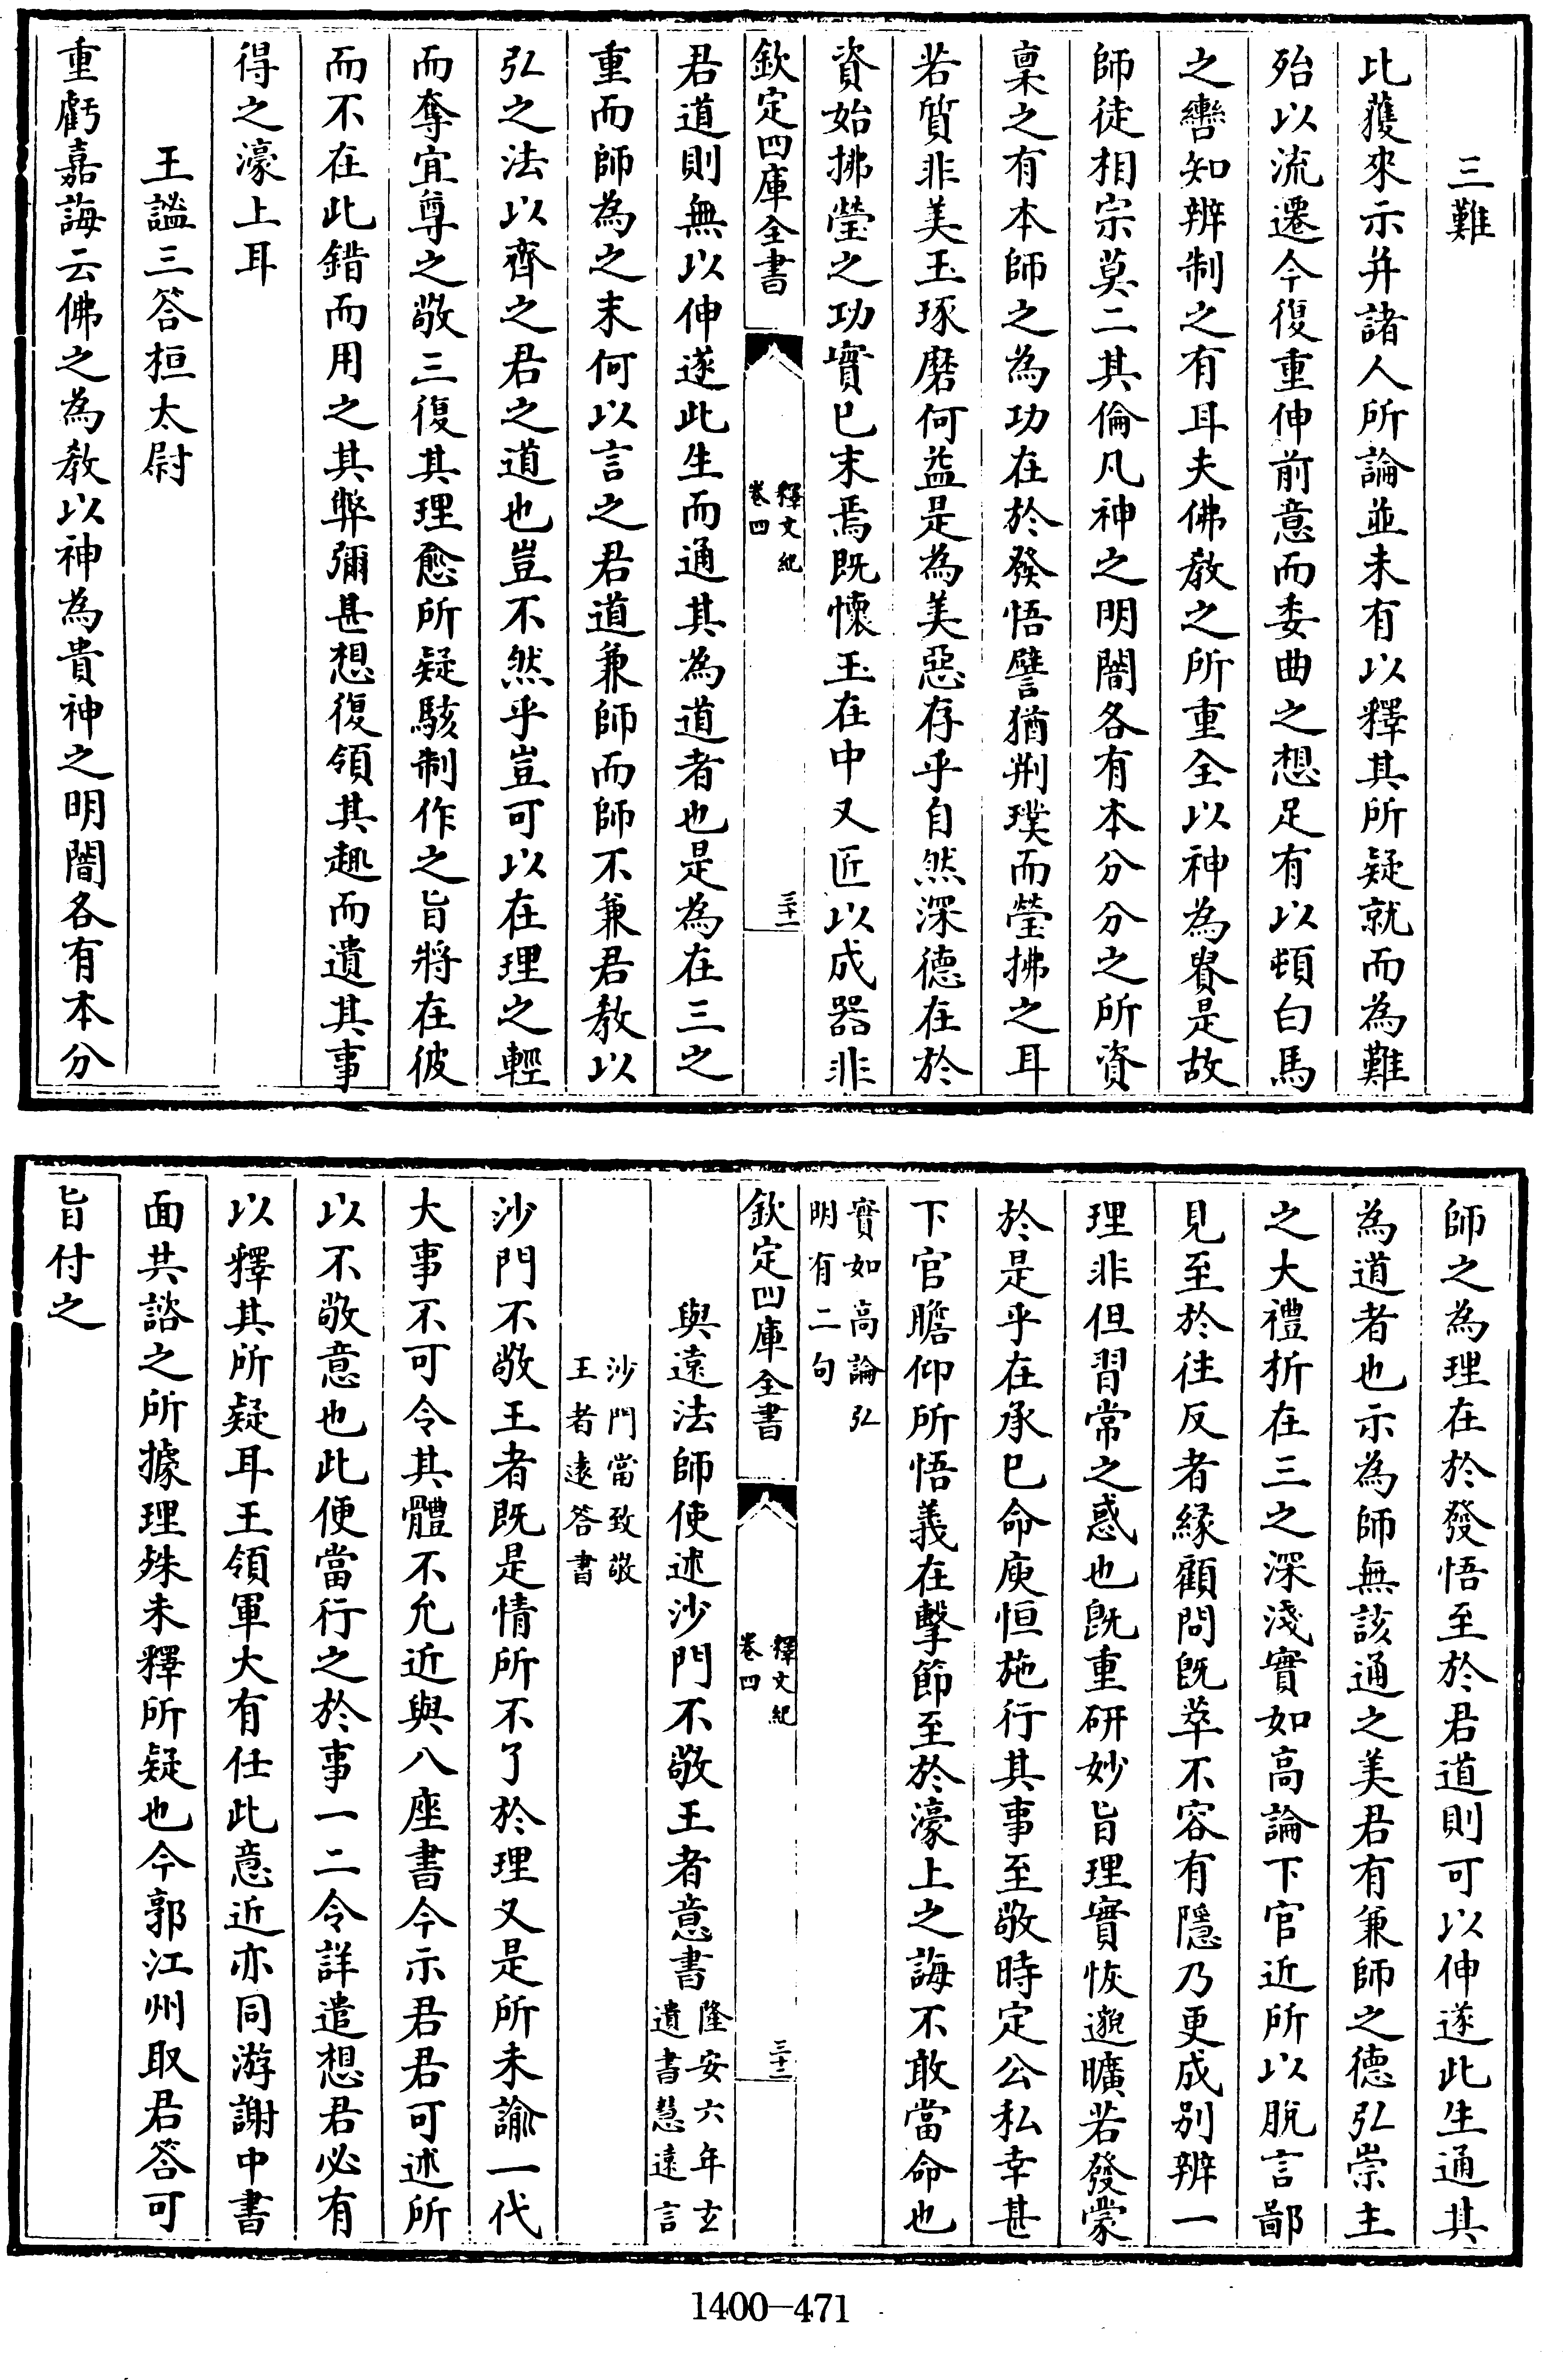 三難
比獲來示并諸人所論並未有以釋其所疑就而為難
殆以流遷今復重伸前意而委曲之想足有以頓白馬
之轡知辨制之有耳夫佛教之所重全以神為貴是故
師徒相宗莫二其倫凡神之明闇各有本分分之所資
稟之有本師之為功在於發悟譬猶荆璞而瑩拂之耳
若質非美玉琢磨何益是為美惡存乎自然深德在於
資始拂瑩之功實已末焉既懷玉在中又匠以成器非
欽定四庫全書
釋文紀
卷四
三十一
君道則無以伸遂此生而通其為道者也是為在三之
重而師為之末何以言之君道兼師而師不兼君教以
弘之法以齊之君之道也豈不然乎豈可以在理之輕
而奪宜尊之敬三復其理愈所疑駭制作之旨將在彼
而不在此錯而用之其弊彌甚想復領其趣而遺其事
得之濠上耳
王謐三答桓太尉
重虧嘉誨云佛之為教以神為貴神之明闇各有本分
師之為理在於發悟至於君道則可以伸遂此生通其
為道者也示為師無該通之美君有兼師之德弘崇主
之大禮折在三之深淺實如高論下官近所以脫言鄙
見至於往反者緣顧問既萃不容有隱乃更成别辨一
理非但習常之惑也既重研妙旨理實恢邈曠若發蒙
於是乎在承已命庾恒施行其事至敬時定公私幸甚
下官瞻仰所悟義在擊節至於濠上之誨不敢當命也
實如高論弘
明有二句
欽定四庫全書
釋文紀
卷四
三十二
與遠法師使述沙門不敬王者意書
隆安六年玄
遺書慧遠言
沙門當致敬
王者遠答書
沙門不敬王者既是情所不了於理又是所未諭一代
大事不可令其體不允近與八座書今示君君可述所
以不敬意也此便當行之於事一二令詳遣想君必有
以釋其所疑耳王領軍大有任此意近亦同游謝中書
面共諮之所據理殊未釋所疑也今郭江州取君答可
旨付之
1400—471